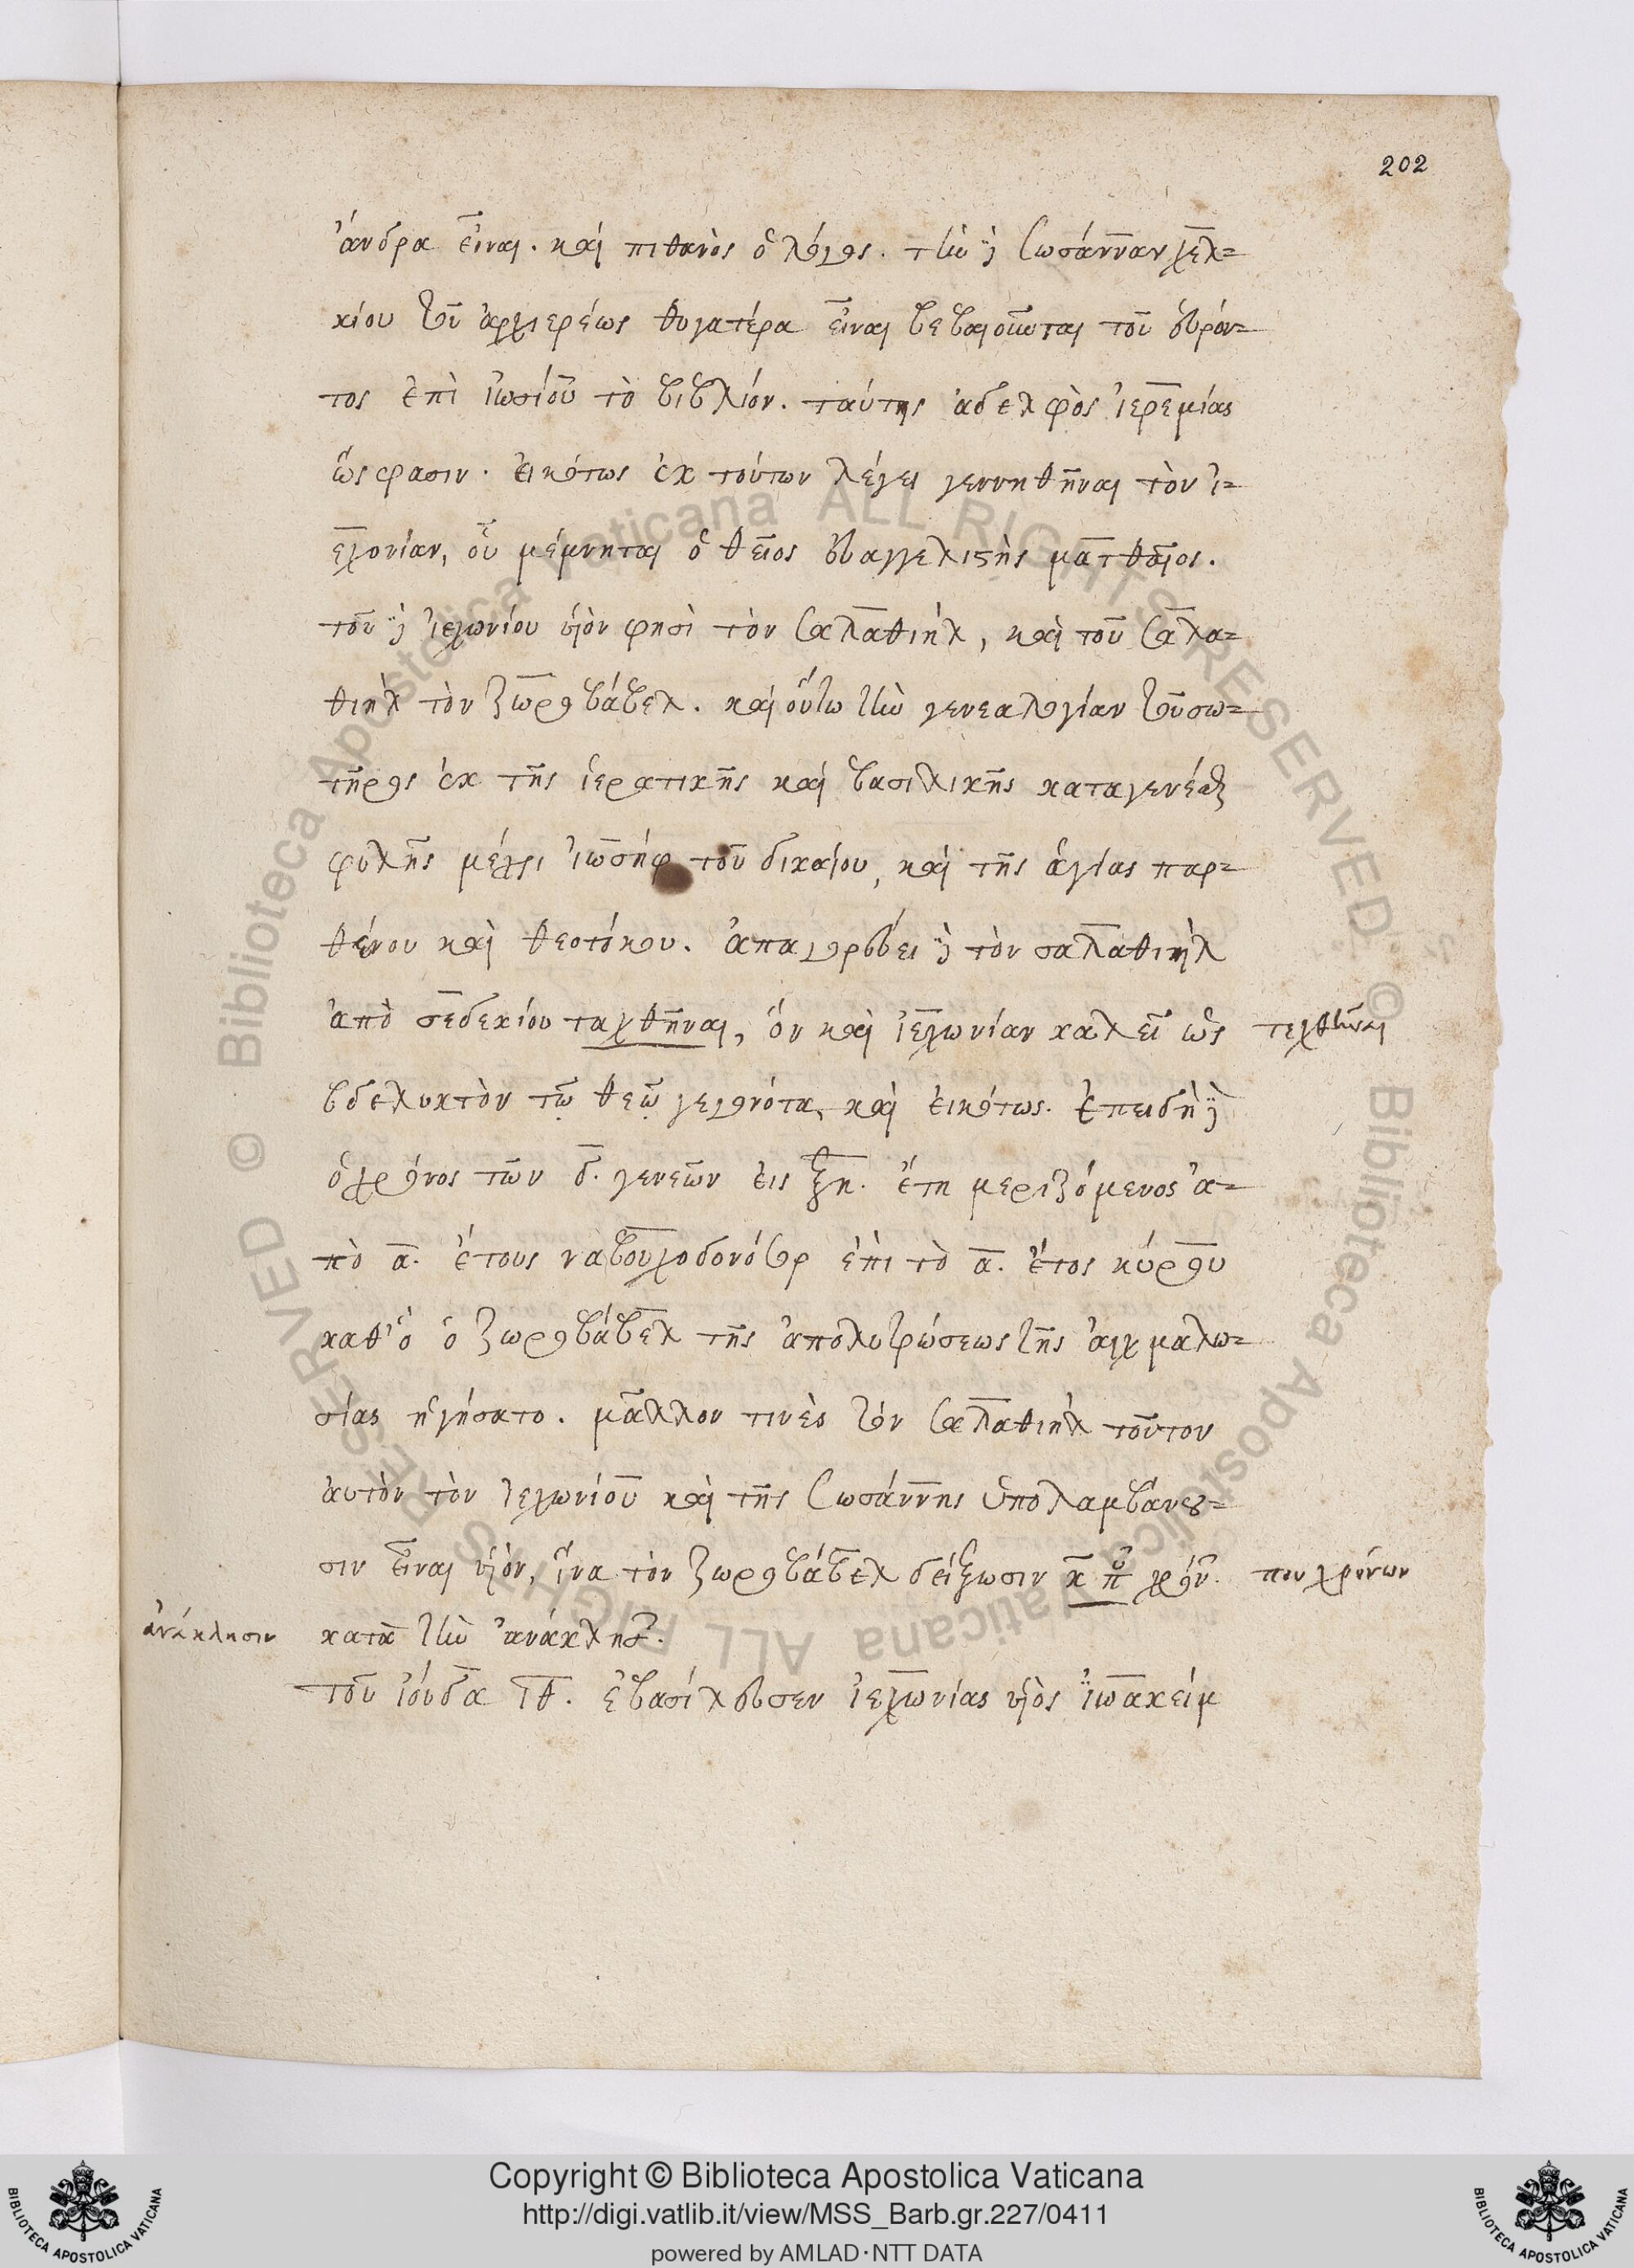 202
ἄνδρα εἶναι. καὶ πιθανὸς ὁ λόγος. τὴν δὲ Σωσάνναν χελ=
κίου τοῦ ἀρχιερέως θυγατέρα εἶναι βεβαιοῦνται τοῦ εὑρόν=
τος ἐπὶ ἰωσίου τὸ βιβλίον. ταύτης ἀδελφὸς ἱερεμίας
ὥς φασιν. εἰκότως ἐκ τούτων λέγει γεννηθῆναι τὸν ἰ=
εχονίαν, οὗ μέμνηται ὁ θεῖος εὐαγγελιστὴς ματθαῖος.
τοῦ δὲ ἰεχωνίου υἱόν φησὶ τὸν Σαλαθιὴλ, καὶ τοῦ Σαλα=
θιὴλ τὸν ζωροβάβελ. καὶ οὕτω τὴν γενεαλογίαν τοῦ σω=
τῆρος ἐκ τῆς ἱερατικῆς καὶ βασιλικῆς καταγενέαξ
φυλῆς μέχρι ἰωσήφ τοῦ δικαίου, καὶ τῆς ἁγίας παρ=
θένου καὶ θεοτόκου. ἀπαγορεύει δὲ τὸν σαλαθιὴλ
ἀπὸ σεδεκίου ταχθῆναι, ὃν καὶ ἰεχωνίαν καλεῖ ὡς τεχθῆναι
βδελυκτὸν τῷ θεῷ γεγονότα, καὶ εἰκότως. ἐπειδὴ δὲ
ὁ χρόνος τῶν δ. γενεῶν εἰς ξη. ἔτη μεριζόμενος ἀ=
πὸ α. ἔτους ναβουχοδονόσορ ἐπὶ τὸ α. ἔτος κύρου
καθ' ὃ ὁ ζωροβάβελ τῆς ἀπολυτρώσεως τῆς αἰχμαλω=
σίας ἡγήσατο. μᾶλλον τινὲς τὸν Σαλαθιὴλ τοῦτον
αὐτὸν τὸν ἰεχωνίου καὶ τῆς Σωσάννης ὑπολαμβάνου=
σιν εἶναι υἱόν, ἵνα τὸν ζωροβάβελ δείξωσιν κ π χρόν. που χρόνων
ἀνάκλησιν κατὰ τὴν ἀνάκλησ.
τοῦ ἰούδα ιθ. ἐβασίλευσεν ἰεχωνίας υἱὸς ἰωακείμ
Biblioteca Apostolica Vaticana ALL RIGHTS RESERVED © Biblioteca Apostolica Vaticana ALL RIGHTS RESERVED ©
Copyright © Biblioteca Apostolica Vaticana
http://digi.vatlib.it/view/MSS_Barb.gr.227/0411
powered by AMLAD·NTT DATA
BIBLIOTECA APOSTOLICA VATICANA
BIBLIOTECA APOSTOLICA VATICANA